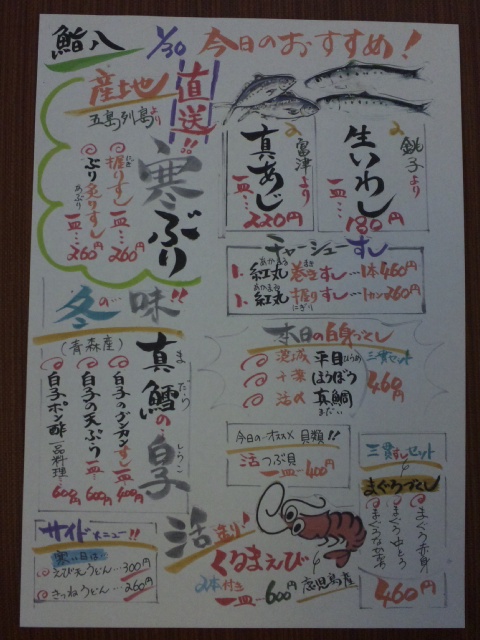 鮨八
1/30 今日のおすすめ!
産土地
直送!!
五島列島より
寒ぶり
握りすし 一皿…260円
ぶり炙りすし 一皿…260円
にぎり
あぶり
富津より
真あじ
一皿…220円
銚子より
生いわし
一皿…180円
チャーシューすし
1、紅丸巻きすし…1本460円
あかまる
1、紅丸握りすし…1カン260円
あかまる
にぎり
冬の味!!
(青森産)
真鱈の白子
まだらのしらこ
白子のグンカンすし 一皿…400円
白子の天ぷら 一皿…600円
白子ポン酢 一品料理…600円
本日の白身づくし
茨城 平目
ひらめ
千葉 ほうぼう
活〆 真鯛
まだい
三貫セット
460円
今日のオススメ 貝類!!
活つぶ貝
一皿…400円
三貫すしセット
まぐろづくし
まぐろ赤身
まぐろ中とろ
460円
サイドメニュー!!
寒い日は…
えび天うどん…300円
きつねうどん…260円
活造り!
くるまえび
2本付き
一皿…600円
鹿児島産